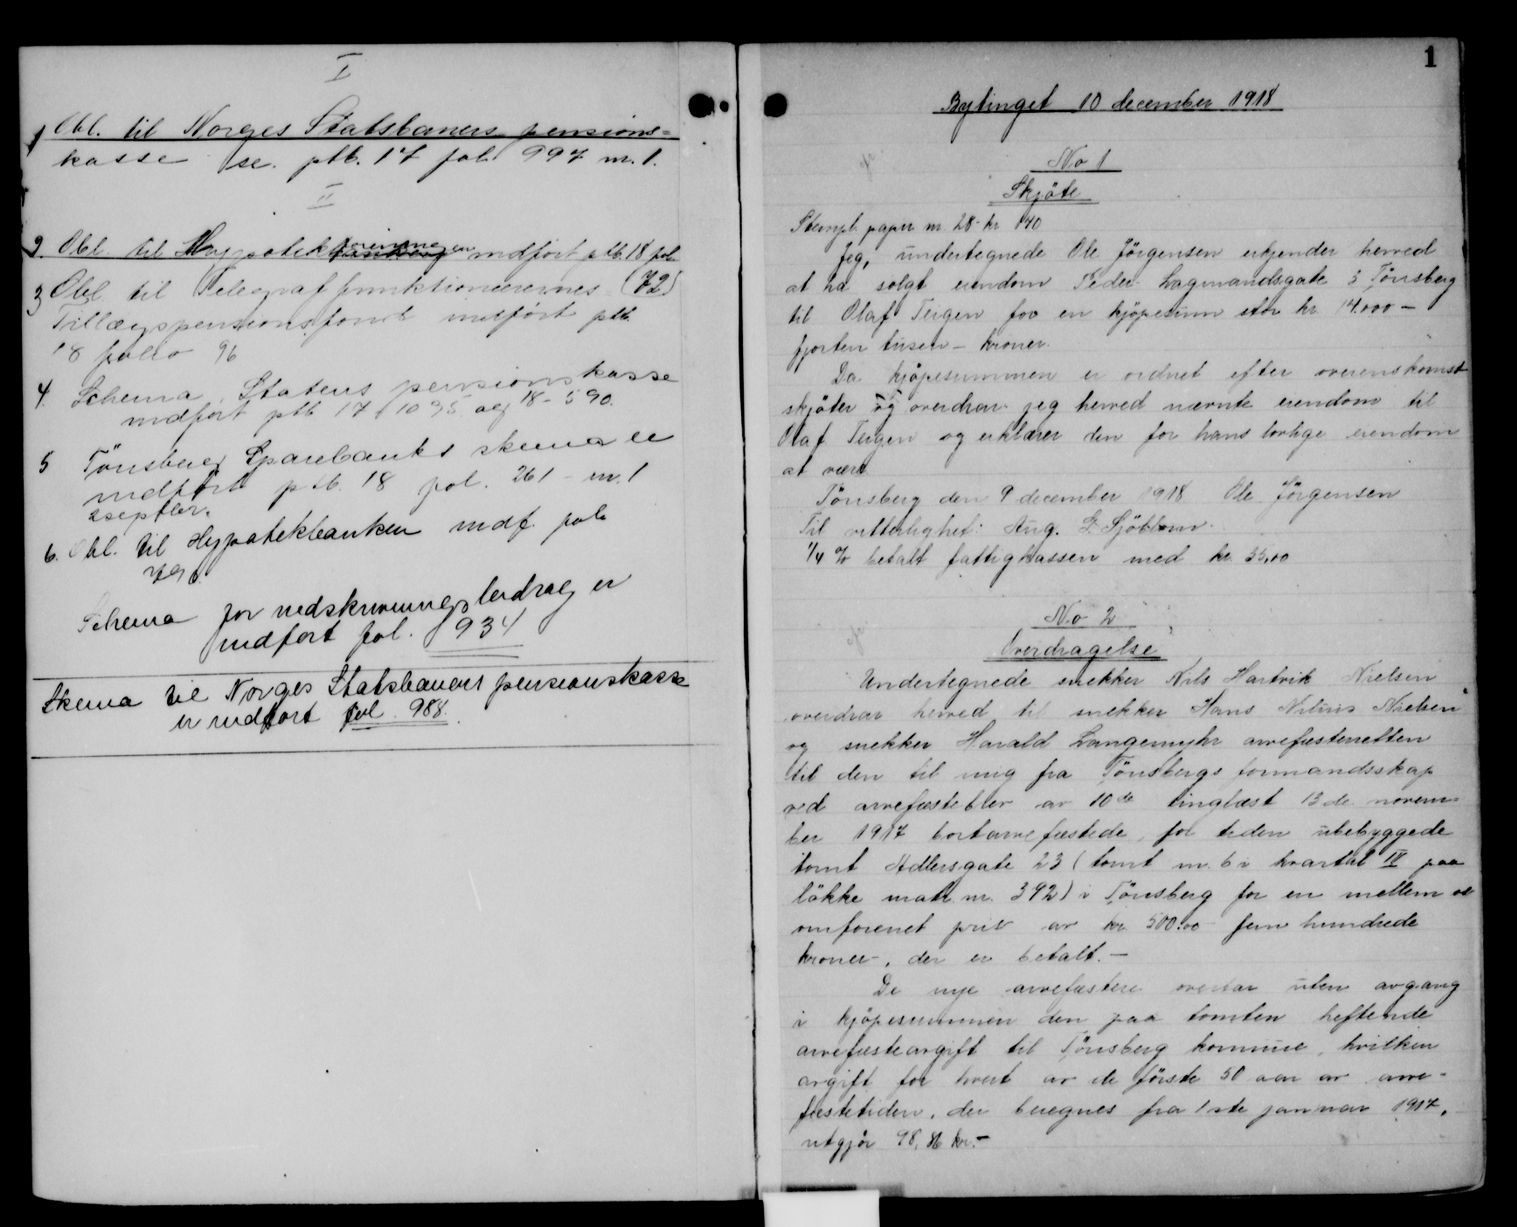 I
1 Obl. til Norges Statsbaners pensions-
kasse se. ptb. 17 fol. 997 m. 1.
II
2. Obl til Hypotekforeningen indført ptb. 18 fol
(72)
3 Obl til Telegraffunktionærernes
Tillægspensionsfond indført ptb.
18 folio 96
4. Schema, Statens pensionskasse
indført ptb 17 1095 og 18 - 590.
5 Tönsberg Sparebanks skema er
indført ptb. 18 fol. 261 - m. 1
6. Obl. til Hypotekbanken indf. fol.
Schema for nedskrivningsbidrag er
indført fol. 934
Skema til Norges Statsbaners pensionskasse
er indført fol. 988.
1
Bytinget 10 december 1918
No 1
Skjöte
Stempl. papir m. 28 - kr 140
Jeg, undertegnede Ole Jörgensen erkjender herved
at ha solgt eiendom Peder Lagmandsgate 3 Tönsberg
til Olaf Teigen for en kjöpesum stor kr. 14.000 -
fjorten tusen - kroner.
Da kjöpesummen er ordnet efter overenskomst
skjöter og overdrar jeg herved nævnte eiendom til
Olaf Teigen og erklærer den for hans lovlige eiendom
at være
Tönsberg den 9 december 1918 Ole Jörgensen
Til vitterlighet: Aug. E. Sjöblom.
1/4 % betalt fattigkassen med kr. 35,00
No 2
Overdragelse
Undertegnede snekker Nils Hartvik Nielsen
overdrar herved til snekker Hans Nilius Nielsen
og snekker Harald Langemyhr arvefæsteretten
til den til mig fra Tönsbergs formandsskap
ved arvefæstebrev av 10de tinglæst 13de novem-
ber 1917 bortarvefæstede, for tiden ubebyggede
tomt Adlersgate 23 (tomt nr. 6 i kvartal IV paa
lökke matr. nr. 392) i Tönsberg for en mellem os
omforenet pris av kr. 500.00 fem hundrede
kroner, der er betalt. -
De nye arvefæstere overtar uten avgang
i kjöpesummen den paa tomten heftende
arvefæsteavgift til Tönsberg kommune, hvilken
avgift for hvert av de förste 50 aar av arve-
fæstetiden, der beregnes fra 1ste januar 1917,
utgjör 98,86 kr. -